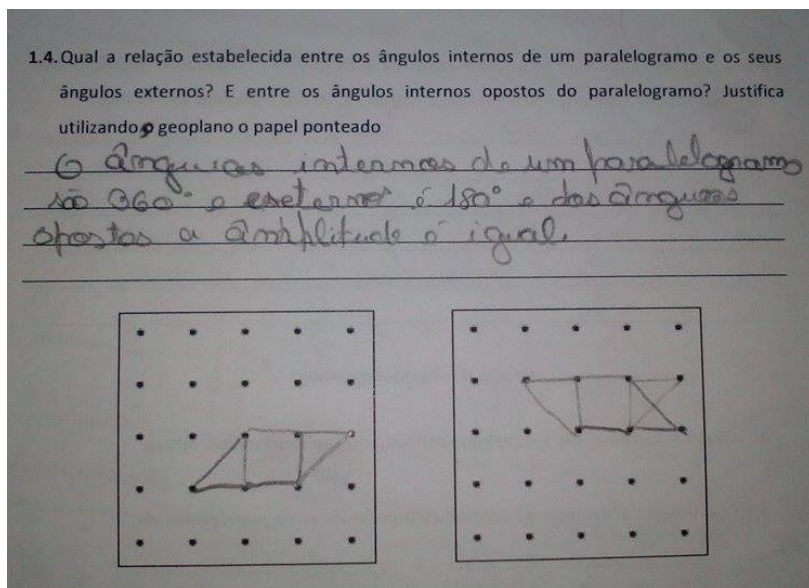 1.4. Qual a relação estabelecida entre os ângulos internos de um paralelogramo e os seus
ângulos externos? E entre os ângulos internos opostos do paralelogramo? Justifica
utilizando o geoplano o papel ponteado
O ânguıos internos de um paralelogramo
são 360° e esternos é 180° e dos ânguıos
opostos a amhplitude é igual.